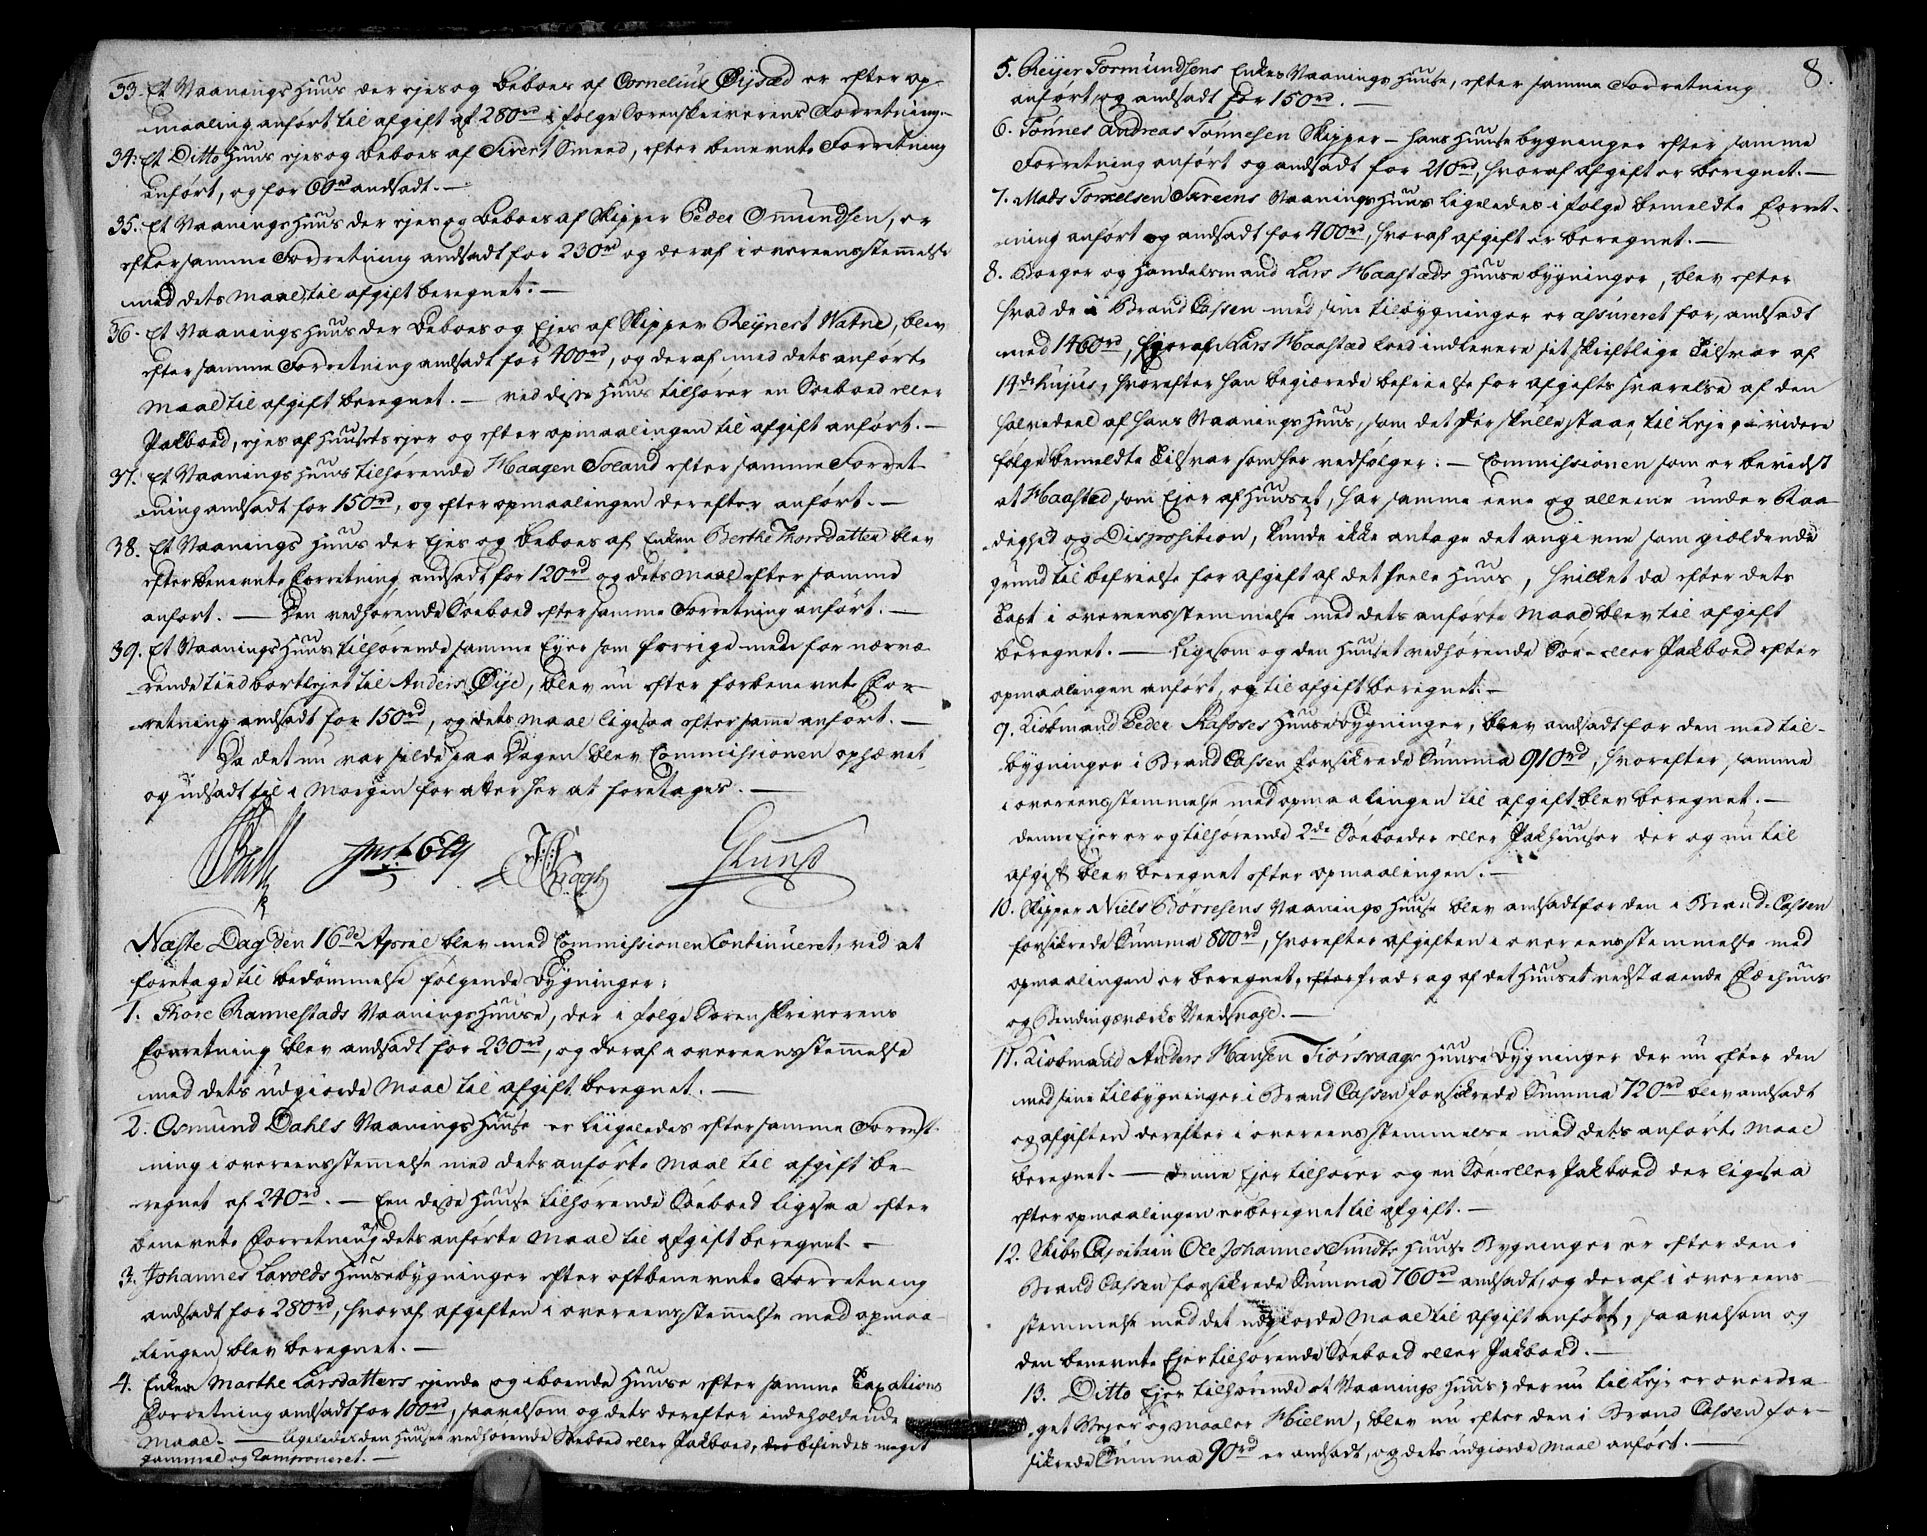 33. Et Vaanings Huus der ejes og beboes af Cornelius Øÿsæd er efter op-
maaling anført til afgift af 280rd i følge Sorenskriverens Forretning.-
34. Et Ditto Huus ejes og beboes af Sivert Smeed, efter benevnte Forretning
anført, og for 60rd andsadt. -
35. Et Vaanings Huus der ejes og beboes af Skipper Peder Omundsen, er
efter samme Forretning andsadt for 230rd og deraf i overeensstemmelse
med dets Maal til afgift beregnet. -
36. Et Vaanings Huus der beboes og Ejes af Skipper Reÿnert Watne, blev
efter samme Forretning andsadt for 400rd, og deraf med dets anførte
Maal til afgift beregnet. - ved disse Huus tilhører en Søeboed eller
Pakboed, ejes af Huusets ejer og efter opmaalingen til afgift anført. -
37. Et Vaanings Huus tilhørende Haagen Soland efter samme Forret-
ning andsadt for 150rd, og efter opmaalingen derefter anført. -
38. Et Vaanings Huus der Ejes og beboes af Enken Berthe Thorsdatter blev
efter benevnte Forretning andsadt for 120rd og dets Maal efter samme
anført. - Den vedhørende Søeboed efter samme Forretning anført. -
39. Et Vaanings Huus tilhørende samme Eyer som forrige men for nærvæ-
rende tiid bortlejet til Anders Øije, blev nu efter forbenevnte For-
retning andsadt for 150rd, og dets Maal ligesaa efter same anført. -
Da det nu var silde paa Dagen blev Commissionen ophævet
og udsadt til i Morgen for atter her at foretages. -
Næste Dag den 16de April blev med Commissionen Continueret, ved at
foretage til bedømmelse følgende Bygninger:
1. Thore Rannestads Vaanings Huuse, der i følge Sorenskriverens
Forretning blev andsadt for 230rd, og deraf i overeensstemmelse
med dets udgiorde Maal til afgift beregnet. -
2. Osmund Dahls Vaanings Huuse er liigeledes efter samme Forret-
ning i overeensstemmelse med dets anførte Maal til afgift be-
regnet af 240rd. - Een disse Huuse tilhørende Søeboed ligesaa efter
benevnte Forretning dets anførte Maal til afgift beregnet. -
3. Johannes Lavolds Huusebygninger efter oftbenevnte Forretning
andsadt for 280rd, hvoraf afgiften i overeensstemmelse med opmaa-
lingen blev beregnet. -
4. Enken Marthe Larsdatters ejende og iboende Huuse efter samme Taxations
Forretning andsadt for 100rd, saavelsom og dets derefter indeholdende
Maal. - ligeledes den Huuset vedhørende Søeboed eller Pakboed, der befindes meget
gammel og ramponeret. -
8.
5. Reijer Tormundsens Enkes Vaanings Huuse, efter samme Forretning
anført og andsadt for 150rd. -
6. Tønnes Andreas Tønnesen Skipper - hans Huusebygninger efter samme
Forretning anført og andsadt for 210rd, hvoraf afgift er beregnet. -
7. Mads Torkelsen Skreens Vaanings Huus ligeledes i følge bemeldte Forret-
ning anført og andsadt for 400rd, hvoraf afgift er beregnet. -
8. Borger og Handelsmand Lars Haastæds Huusebygninger, blev efter
hvad de i Brand Cassen med sine tilbygninger er assureret for, andsadt
med 1460rd, Lars Haastæd loed indlevere sit skriftlige Tilsvar af
14de hujus, hvorefter han begiærede befrielse for afgifts svarelse af den
halvedeel af hans Vaanings Huus, som det der skulle staae til leje, i videre
følge bemeldte Tilsvar som her vedfølger: - Commissionen som er bevidst
at Haastæd som Ejer af Huuset, har samme eene og alleene under Raa-
dighed og Disposition, kunde ikke antage det angivne som gieldende
grund til befrielse for afgift af det heele Huus, hvilket da efter dets
Taxt i overeensstemmelse med dets anførte Maal blev til afgift
beregnet. - Ligesom og den Huuset vedhørende Søe- eller Pakboed efter
opmaalingen anført, og til afgift beregnet. -
9. Kiøbmand Peder Rafoses Huusebygninger, blev andsadt for den med til-
bygninger i Brand Cassen forsikrede Summa 910rd, hvorefter samme
i overeensstemmelse med opmaalingen til afgift blev beregnet. -
denne Ejer er og tilhørende 2de Søeboeder eller Pakhuuser der og nu til
afgift blev beregnet efter opmaalingen. -
10. Skipper Niels Børresens Vaanings Huuse blev andsadt for den i Brand-Cassen
forsikrede Summa 800rd, hvorefter afgiften i overeensstemmelse med
opmaalingen er beregnet, efter fradrag af det Huuset vedstaaende Eldehuus
og Bindingsværks
11. Kiøbmand Anders Hansen Tiørsvaags Huuse Bygninger der nu efter den
med sine tilbygninger i Brand Cassen forsikrede Summa 720rd blev andsadt
og afgiften derefter i overeensstemmelse med dets anførte Maal
beregnet. - denne Ejer tilhører og en Søe- eller Pakboed der ligesaa
efter opmaalingen er beregnet til afgift. -
12. Skibs Capitain Ole Johannes Sundts Huuse Bygninger er efter den i
Brand Cassen forsikrede Summa 760rd andsadt, og deraf i overeens-
stemmelse med det udgiorde Maal til afgift anført, saavelsom og
den benevnte Ejer tilhørende Søeboed eller Pakboed. -
13. Ditto Ejer tilhørende et Vaanings Huus, der nu til Leje er overdra-
get Vejer og Maaler Hielm, blev nu efter den i Brand Cassen for-
sikrede Summa 90rd er andsadt, og dets udgiorde Maal anført. -